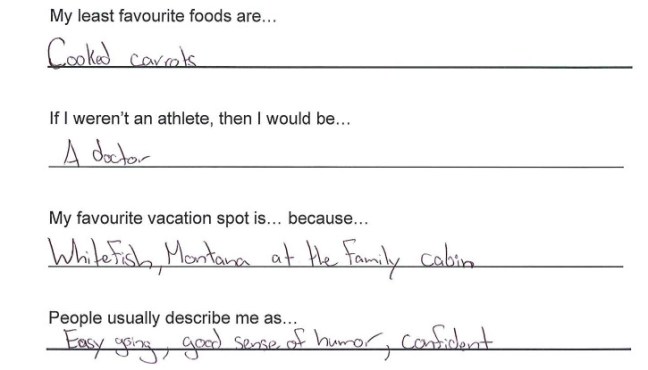 My least favourite foods are...
Cooked carrots
If I weren't an athlete, then I would be...
A doctor
My favourite vacation spot is... because...
Whitefish, Montana at the family cabin
People usually describe me as...
Easy going, good sense of humor, confident